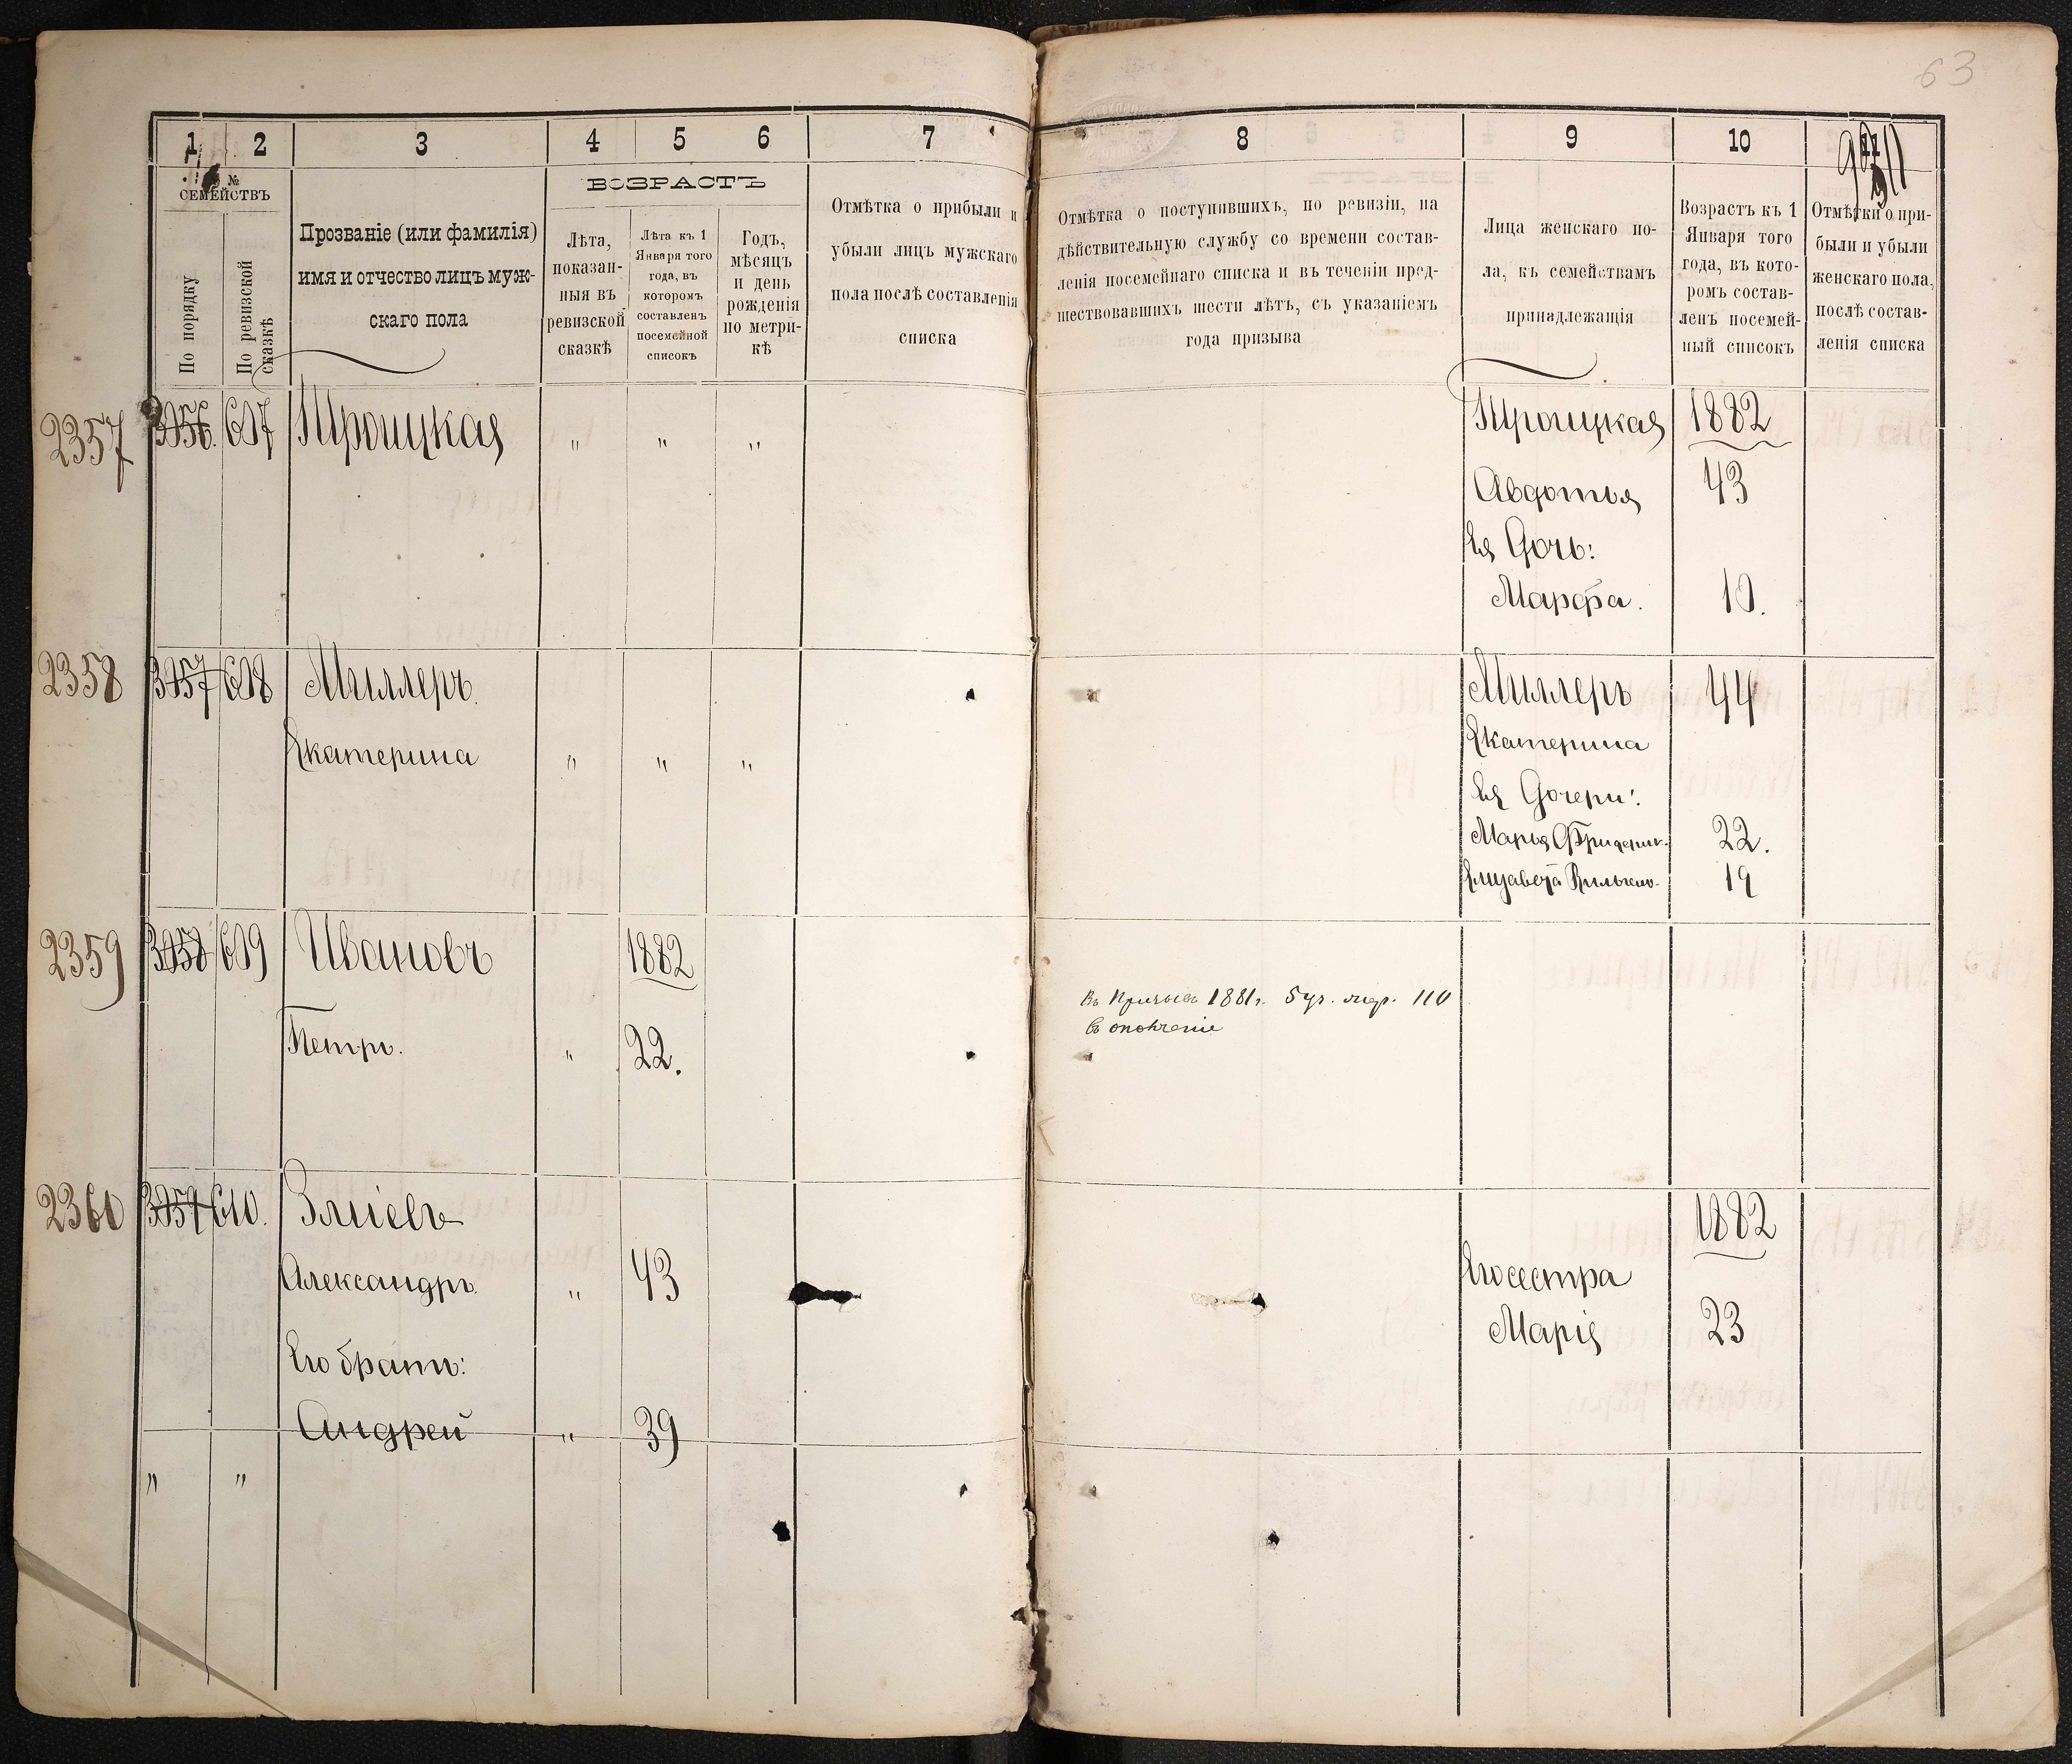 63
1
2
3
4
5
6
7
8
9
10
11
№
СЕМЕЙСТВЪ
По порядку
По ревизской
сказкѣ
Прозваніе (или фамилія)
имя и отчество лицъ муж-
скаго пола
ВОЗРАСТЪ
Лѣта,
показан-
ныя въ
ревизской
сказкѣ
Лѣта къ 1
Января того
года, въ
которомъ
составленъ
посемейной
списокъ
Годъ,
мѣсяцъ
и день
рожденія
по метри-
кѣ
Отмѣтка о прибыли и
убыли лицъ мужскаго
пола послѣ составленія
списка
Отмѣтка о поступившихъ, по ревизіи, на
дѣйствительную службу со времени состав-
ленія посемейнаго списка и въ теченіи пред-
шествовавшихъ шести лѣтъ, съ указаніемъ
года призыва
Лица женскаго по-
ла, къ семействамъ
принадлежащія
Возрастъ къ 1
Января того
года, въ кото-
ромъ состав-
ленъ посемей-
ный списокъ
Отмѣтки о при-
были и убыли
женскаго пола,
послѣ состав-
ленія списка
2357 3056. 607 Троицкая " " "
Троицкая 1882
Авдотья 43
Ея Дочь:
Марфа. 10.
2358 3057 608 Миллеръ
Екатерина " " "
Миллеръ 44
Екатерина
Ея Дочери:
Марья Фридерик- 22.
Елизавета Вильгель- 19
2359 3058 609 Ивановъ 1882
Петръ. " 22.
Въ Призывъ 1881г. 5 уч. жер. 110
въ ополченіе
2360 3059 610. Змiевъ
Александръ " 43
Его братъ:
Андрей " 39
1882
Его сестра
Марія 23
" "